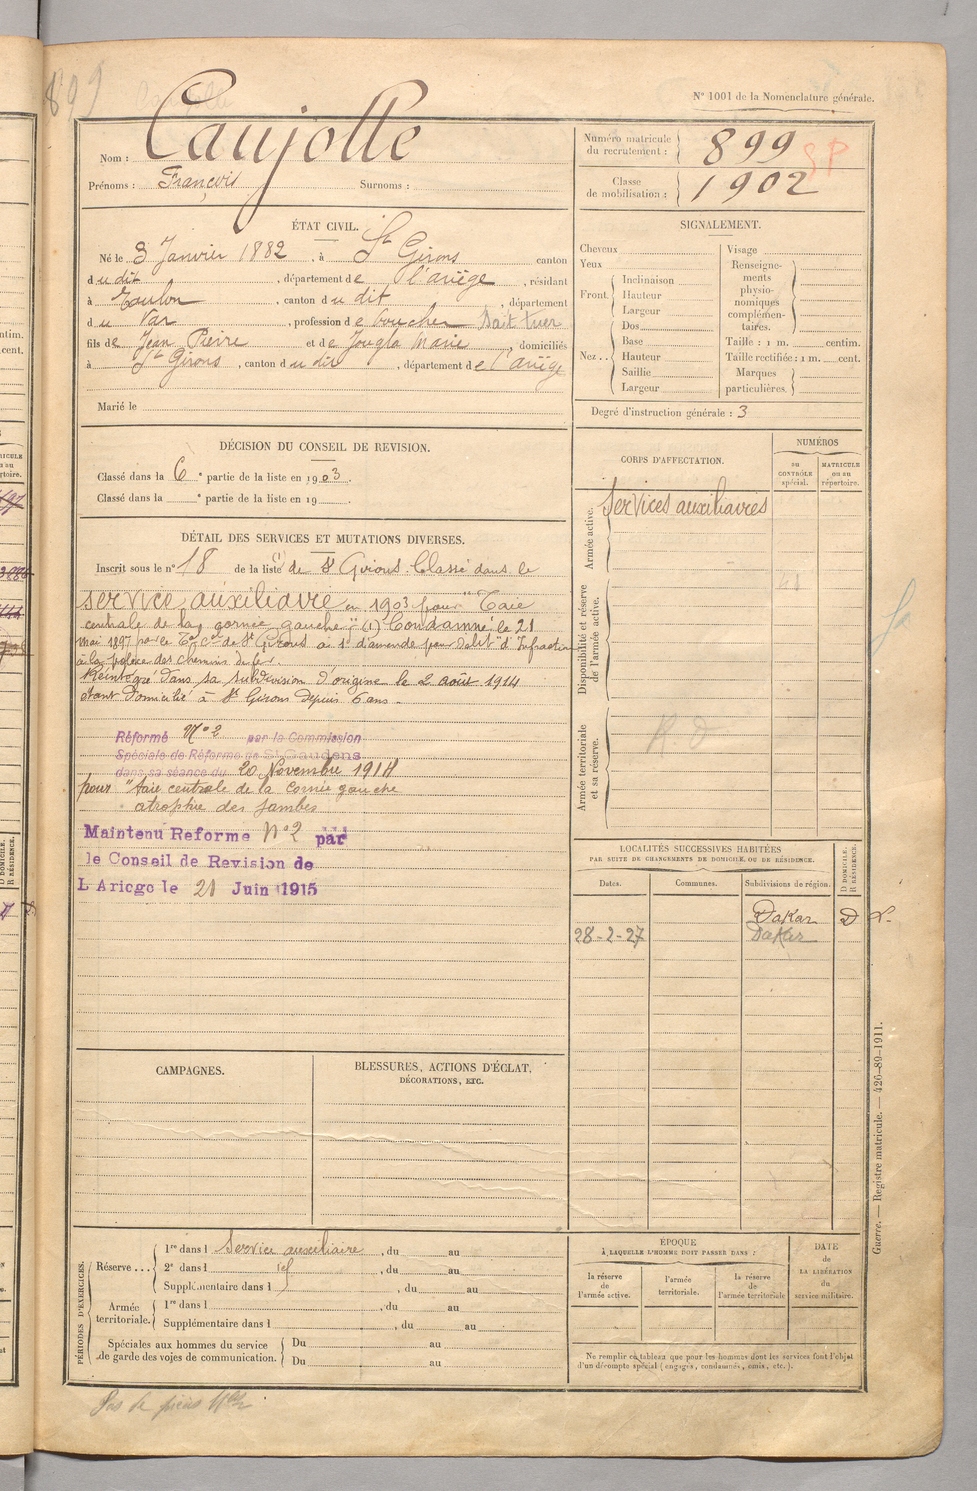 899
N° 1001 de la Nomenclature générale.
Nom : Caujolle
Prénoms : François Surnoms :
Numéro matricule du recrutement : 899
SP
Classe de mobilisation : 1902
ÉTAT CIVIL.
Né le 3 Janvier 1882, à St Girons canton
du dit, département de l'ariège, résidant
à Toulon, canton du dit, département
du Var, profession de boucher Dait tuer
fils de Jean Pierre et de Jougla Marie, domiciliés
à St Girons, canton du dit, département de l'ariège
Marié le
SIGNALEMENT.
Cheveux
Yeux
Front. Inclinaison
Hauteur
Largeur
Nez.. Dos
Base
Hauteur
Saillie
Largeur
Visage
Renseignements physionomiques complémentaires.
Taille : 1 m. centim.
Taille rectifiée : 1 m. cent.
Marques particulières.
Degré d'instruction générale : 3
DÉCISION DU CONSEIL DE REVISION.
Classé dans la 6e partie de la liste en 1903.
Classé dans la e partie de la liste en 19
CORPS D'AFFECTATION.
NUMÉROS
au CONTRÔLE spécial.
MATRICULE ou au répertoire.
Armée active.
Services auxiliaires
Disponibilité et réserve de l'armée active.
Armée territoriale et sa réserve.
R D
DÉTAIL DES SERVICES ET MUTATIONS DIVERSES.
Inscrit sous le n° 18 de la liste de St Girons. Classé dans le
service auxiliaire en 1903 pour "Taie
centrale de la cornée gauche" (1) Condamné le 21
mai 1897 par le Tal Cel de St Girons à 1f d'amende pour délit d'Infraction
à la police des chemins de fer.
Réintégré dans sa subdivision d'origine le 2 août 1914
étant domicilié à St Girons depuis 6 ans.
Réformé N° 2 par la Commission
Spéciale de Réforme de St Gaudens
dans sa séance du 20 Novembre 1914
pour "taie centrale de la cornée gauche
atrophie des jambes
Maintenu Reforme N° 2 par
le Conseil de Revision de
L Ariege le 21 Juin 1915
LOCALITÉS SUCCESSIVES HABITÉES
PAR SUITE DE CHANGEMENTS DE DOMICILE OU DE RÉSIDENCE.
D DOMICILE. R RÉSIDENCE.
Dates. Communes. Subdivisions de région.
Dakar D
28-2-27 Dakar
CAMPAGNES.
BLESSURES, ACTIONS D'ÉCLAT,
DÉCORATIONS, ETC.
PÉRIODES D'EXERCICES.
Réserve... 1re dans l Service auxiliaire, du au
2e dans l id, du au
Supplémentaire dans l, du au
Armée territoriale. 1re dans l, du au
Supplémentaire dans l, du au
Spéciales aux hommes du service de garde des voies de communication. Du au
Du au
ÉPOQUE
À LAQUELLE L'HOMME DOIT PASSER DANS :
la réserve de l'armée active.
l'armée territoriale.
la réserve de l'armée territoriale
DATE de LA LIBÉRATION du service militaire.
Ne remplir ce tableau que pour les hommes dont les services font l'objet
d'un décompte spécial (engagés, condamnés, omis, etc.).
Guerre. — Registre matricule. — 426-89-1911.